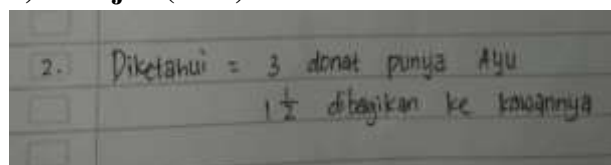 2. Diketahui = 3 donat punya Ayu
1 1/2 dibagikan ke kawannya